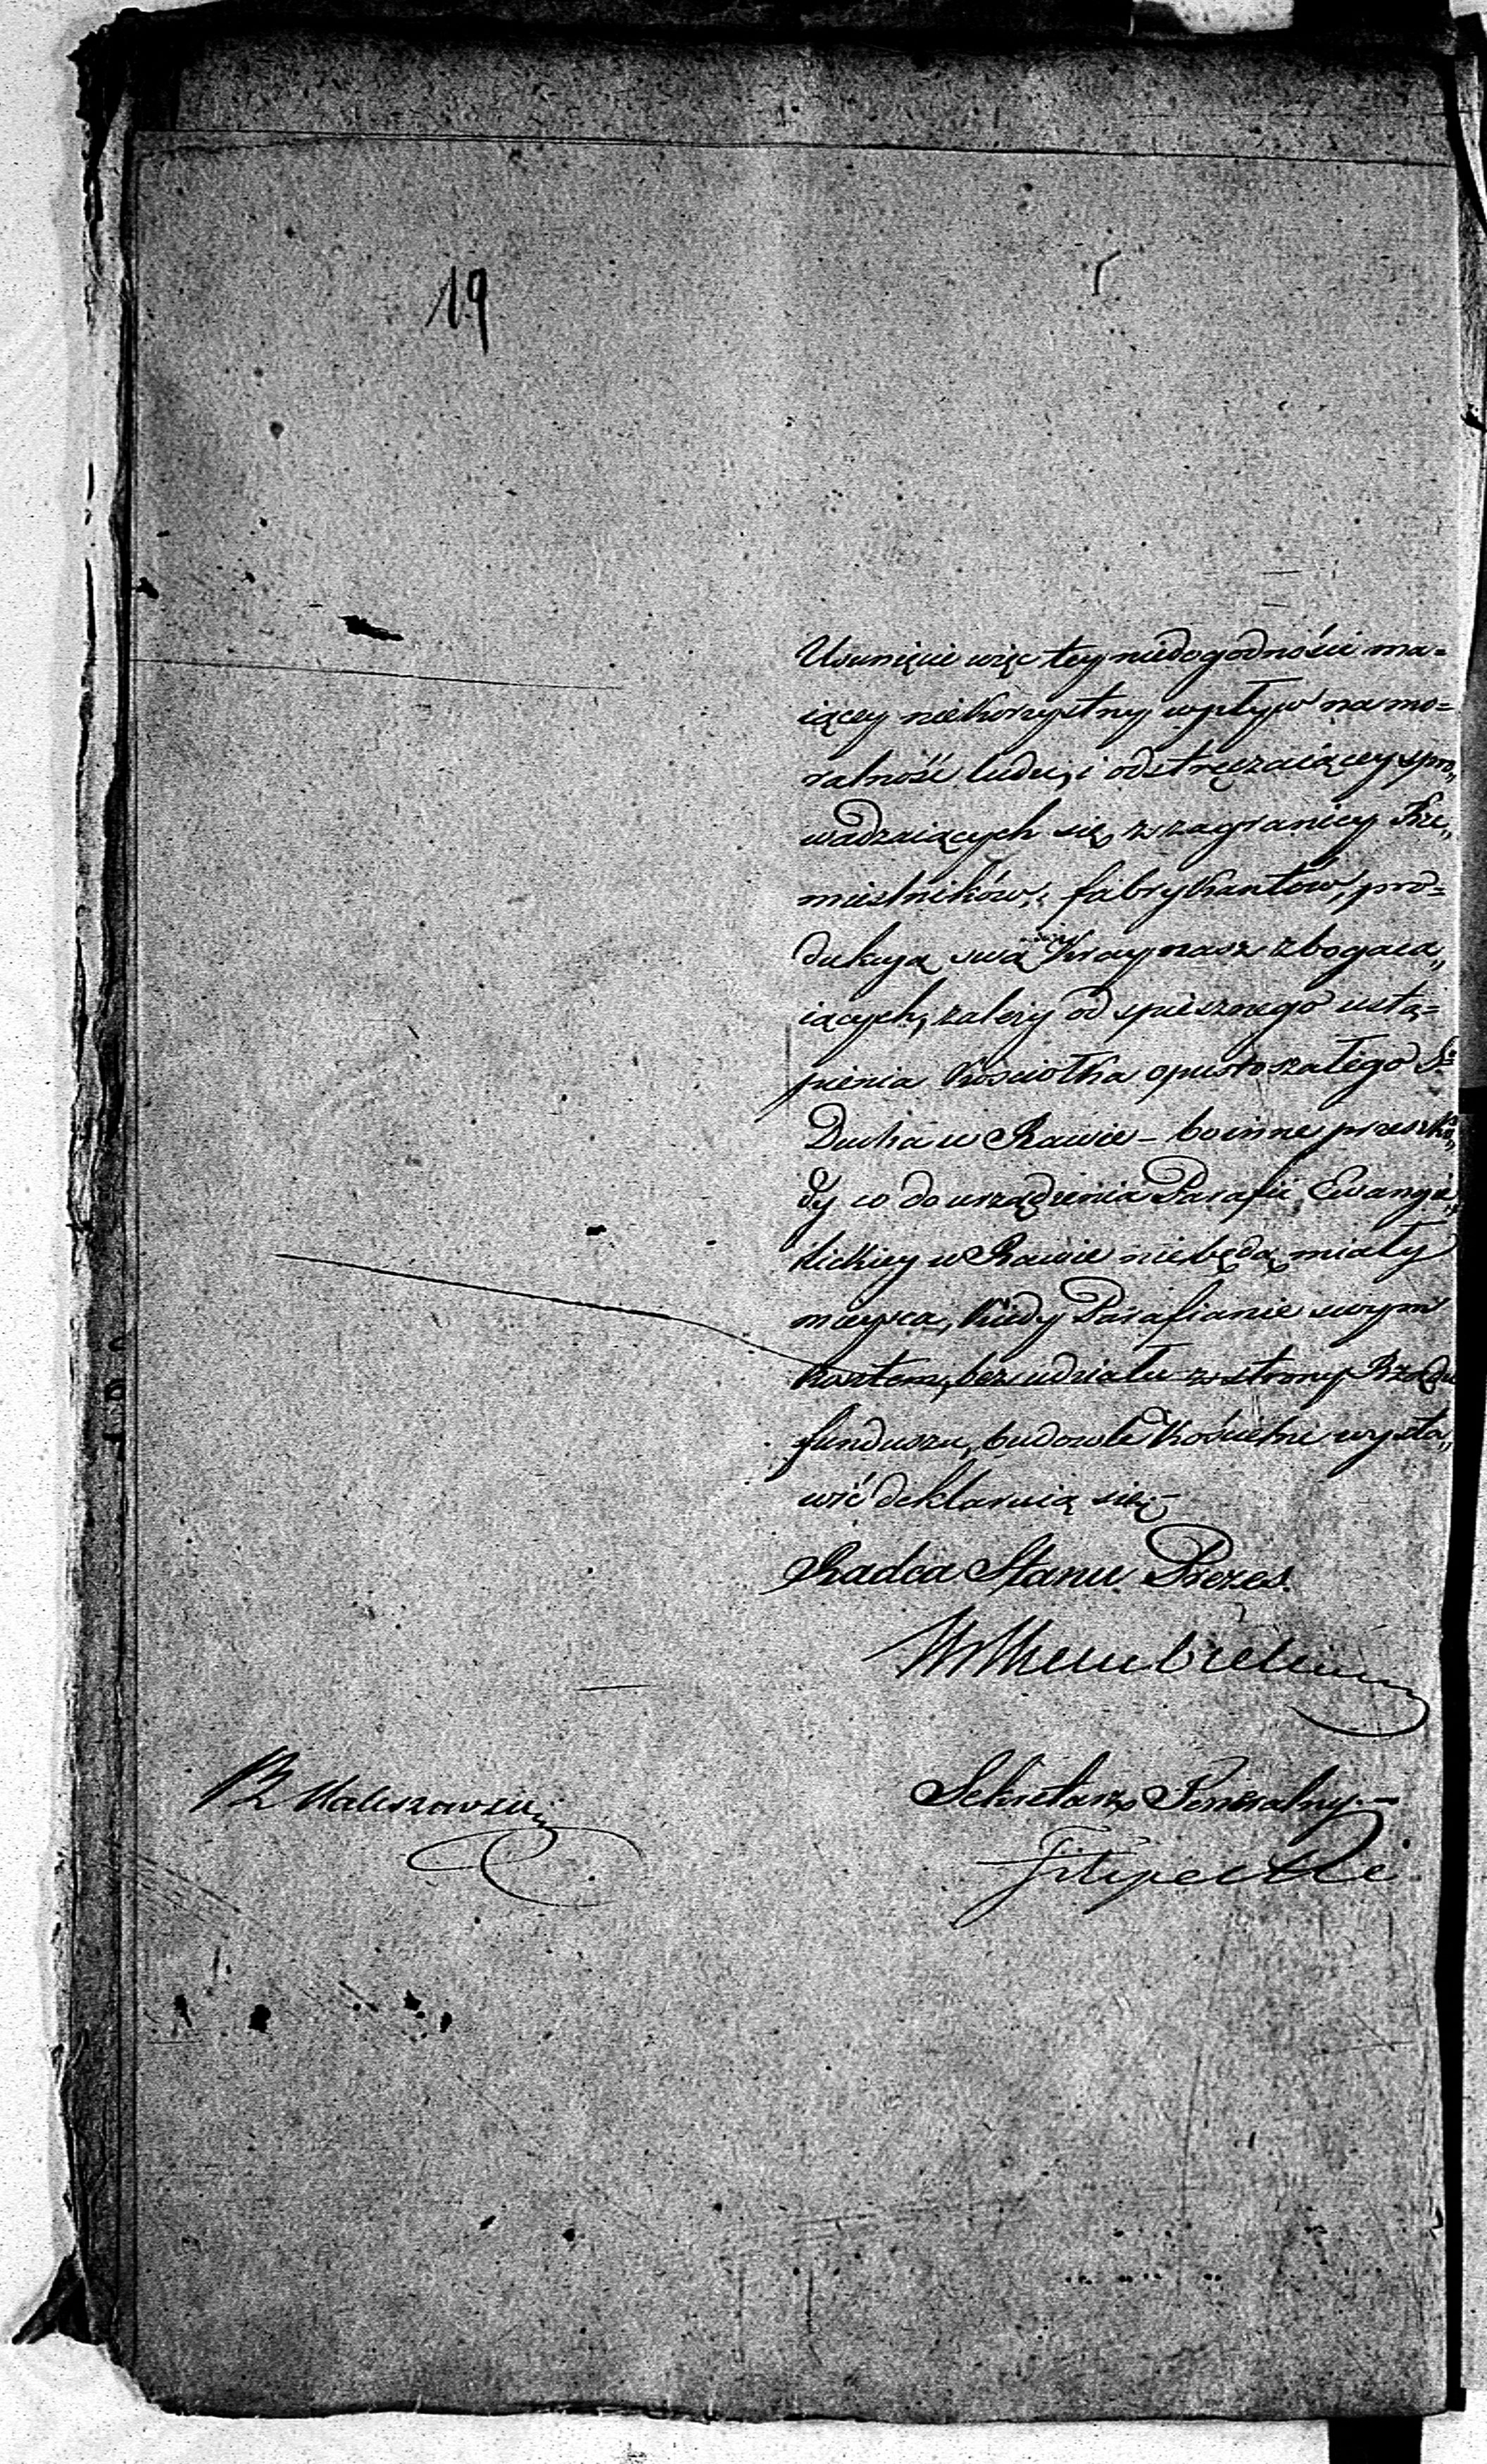 19
Usunięcie więc tey niedogodności ma=
iącey niekorzystny wpływ na mo=
ralność ludu, i odstręczaiącey spro„
wadzaiących się z zagranicy Rze„
mieślników, i fabrykantów, pro=
dukcyą swą Kray nasz zbogaca„
iących, zależy od spiesznego ustą=
pienia Kościołka opustoszałego Sgo
Ducha w Rawie – bo inne przeszko„
dy co do urządzenia Parafii Ewange„
lickiey w Rawie niebędą miały
mieysca, kiedy Parafianie swym
kosztem, bez udziału z strony Rządu
funduszu, budowle Kościelne wysta„
wić deklaruią się –
Radca Stanu Prezes
Sekretarz Generalny. –
Filipecki